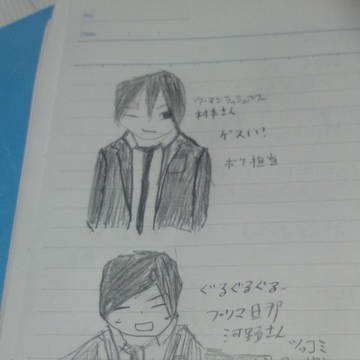 No.
Date
ウーマンラッシュアワー
村本さん
ゲスい!
ボケ担当
ぐるぐるぐる〜
プリマ旦那
河野さん
ツッコミ